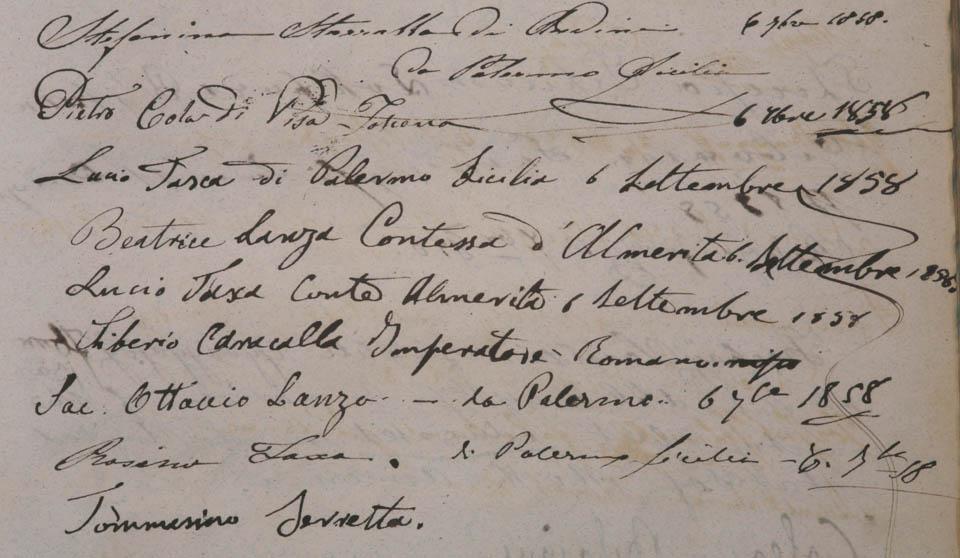 Stefanina Starrabba di Rudinì 6 7bre 1858.
da Palermo Sicilia
Pietro Cola di Pisa Toscana 6 7bre 1858
Lucio Tasca di Palermo Sicilia 6 Settembre 1858
Beatrice Lanza Contessa d'Almerita 6. Settembre 1858.
Lucio Tasca Conte Almerita 6 Settembre 1858
Tiberio Caracalla Imperatore Romano.
Sac. Ottavio Lanza — da Palermo. 6 7bre 1858
Rosina Tasca. di Palermo Sicilia - 6. 7bre 58
Tommasino Serretta.